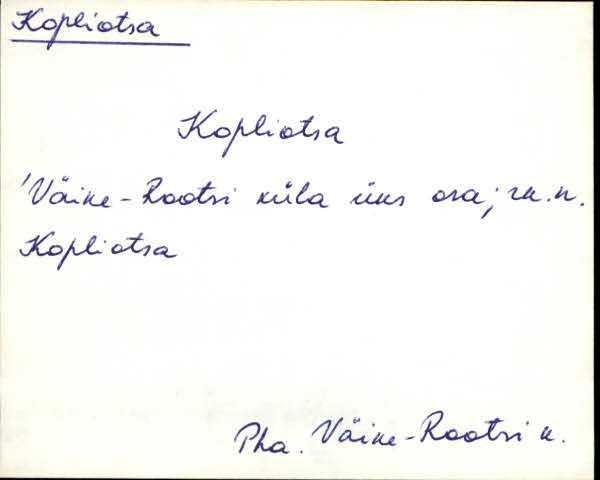 Kopliotsa
Kopliotsa
'Väike-Rootsi küla üks osa; rk.n.
Kopliotsa
Pha. Väike-Rootsi k.